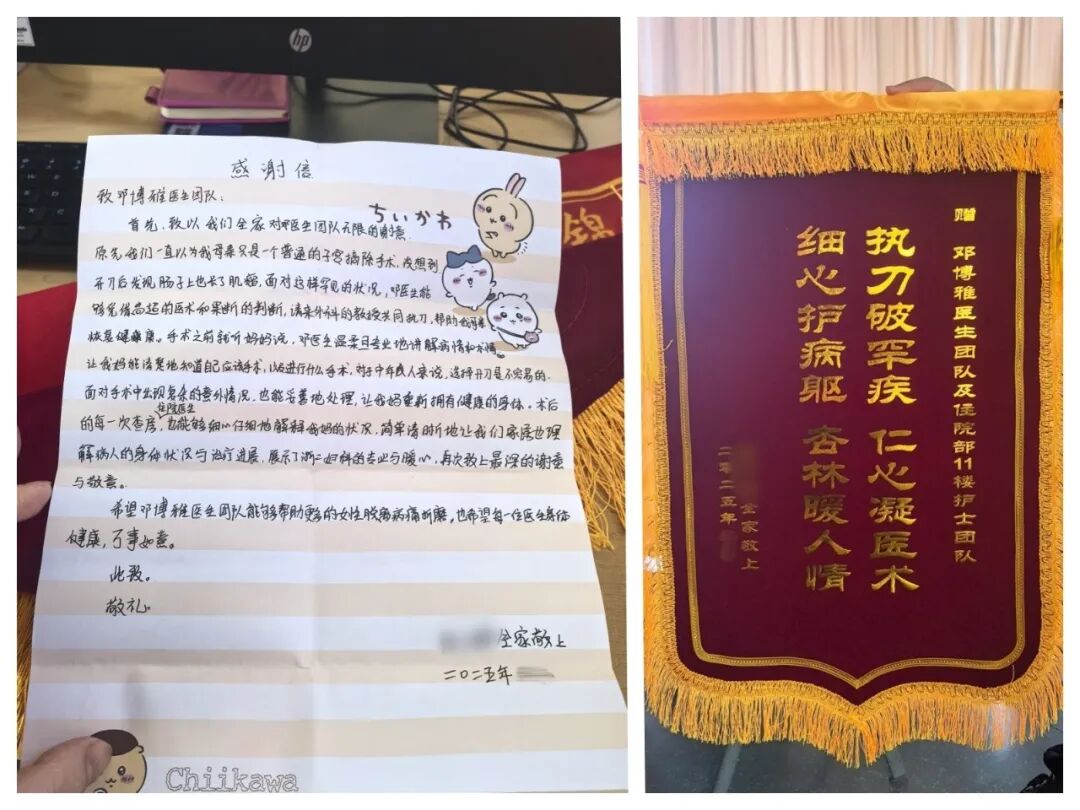 hp
感谢信
致邓博雅医生团队:
首先,致以我们全家对邓医生团队无限的谢意.
原先我们一直以为我母亲只是一个普通的子宫摘除手术,没想到
开刀后发现肠子上也长了肌瘤,面对这样罕见的状况,邓医生能
够凭借高超的医术和果断的判断,请来外科的教授共同执刀,帮助我母亲
恢复健康。手术之前就听妈妈说,邓医生温柔且专业地讲解病情和术情
让我妈能清楚地知道自己应该手术,以及进行什么手术,对于中年人来说,选择开刀是不容易的.
面对手术中出现复杂的意外情况,也能妥善地处理,让我妈重新拥有健康的身体。术后
的每一次查房,住院医生也能够细心仔细地解释我妈的状况,简单清晰地让我们家属也理
解病人的身体状况与治疗进展,展示了浙二妇科的专业与暖心,再次致上最深的谢意
与敬意。
希望邓博雅医生团队能够帮助更多的女性脱离病痛折磨,也希望每一位医生身体
健康,万事如意。
此致。
敬礼
全家敬上
二〇二五年
ちいかわ
Chiikawa
锦
赠 邓博雅医生团队及住院部11楼护士团队
执刀破罕疾 仁心凝医术
细心护病躯 杏林暖人情
全家敬上
二零二五年